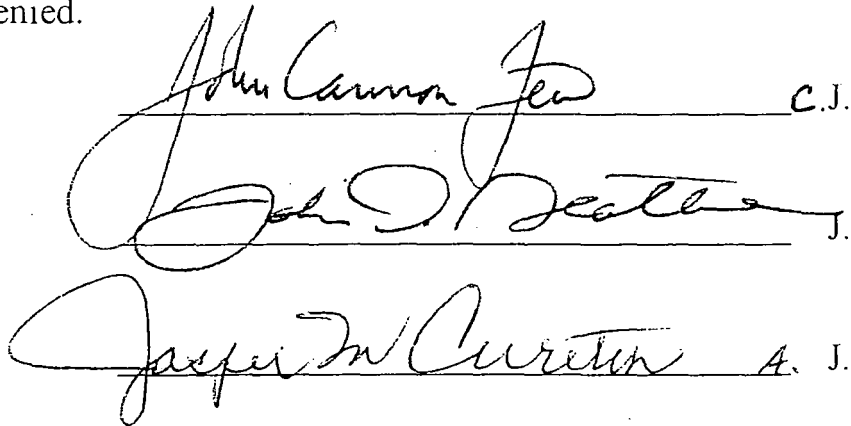 enied.
John Cannon Few C.J.
John D. Geathers J.
Jasper M Cureton A. J.